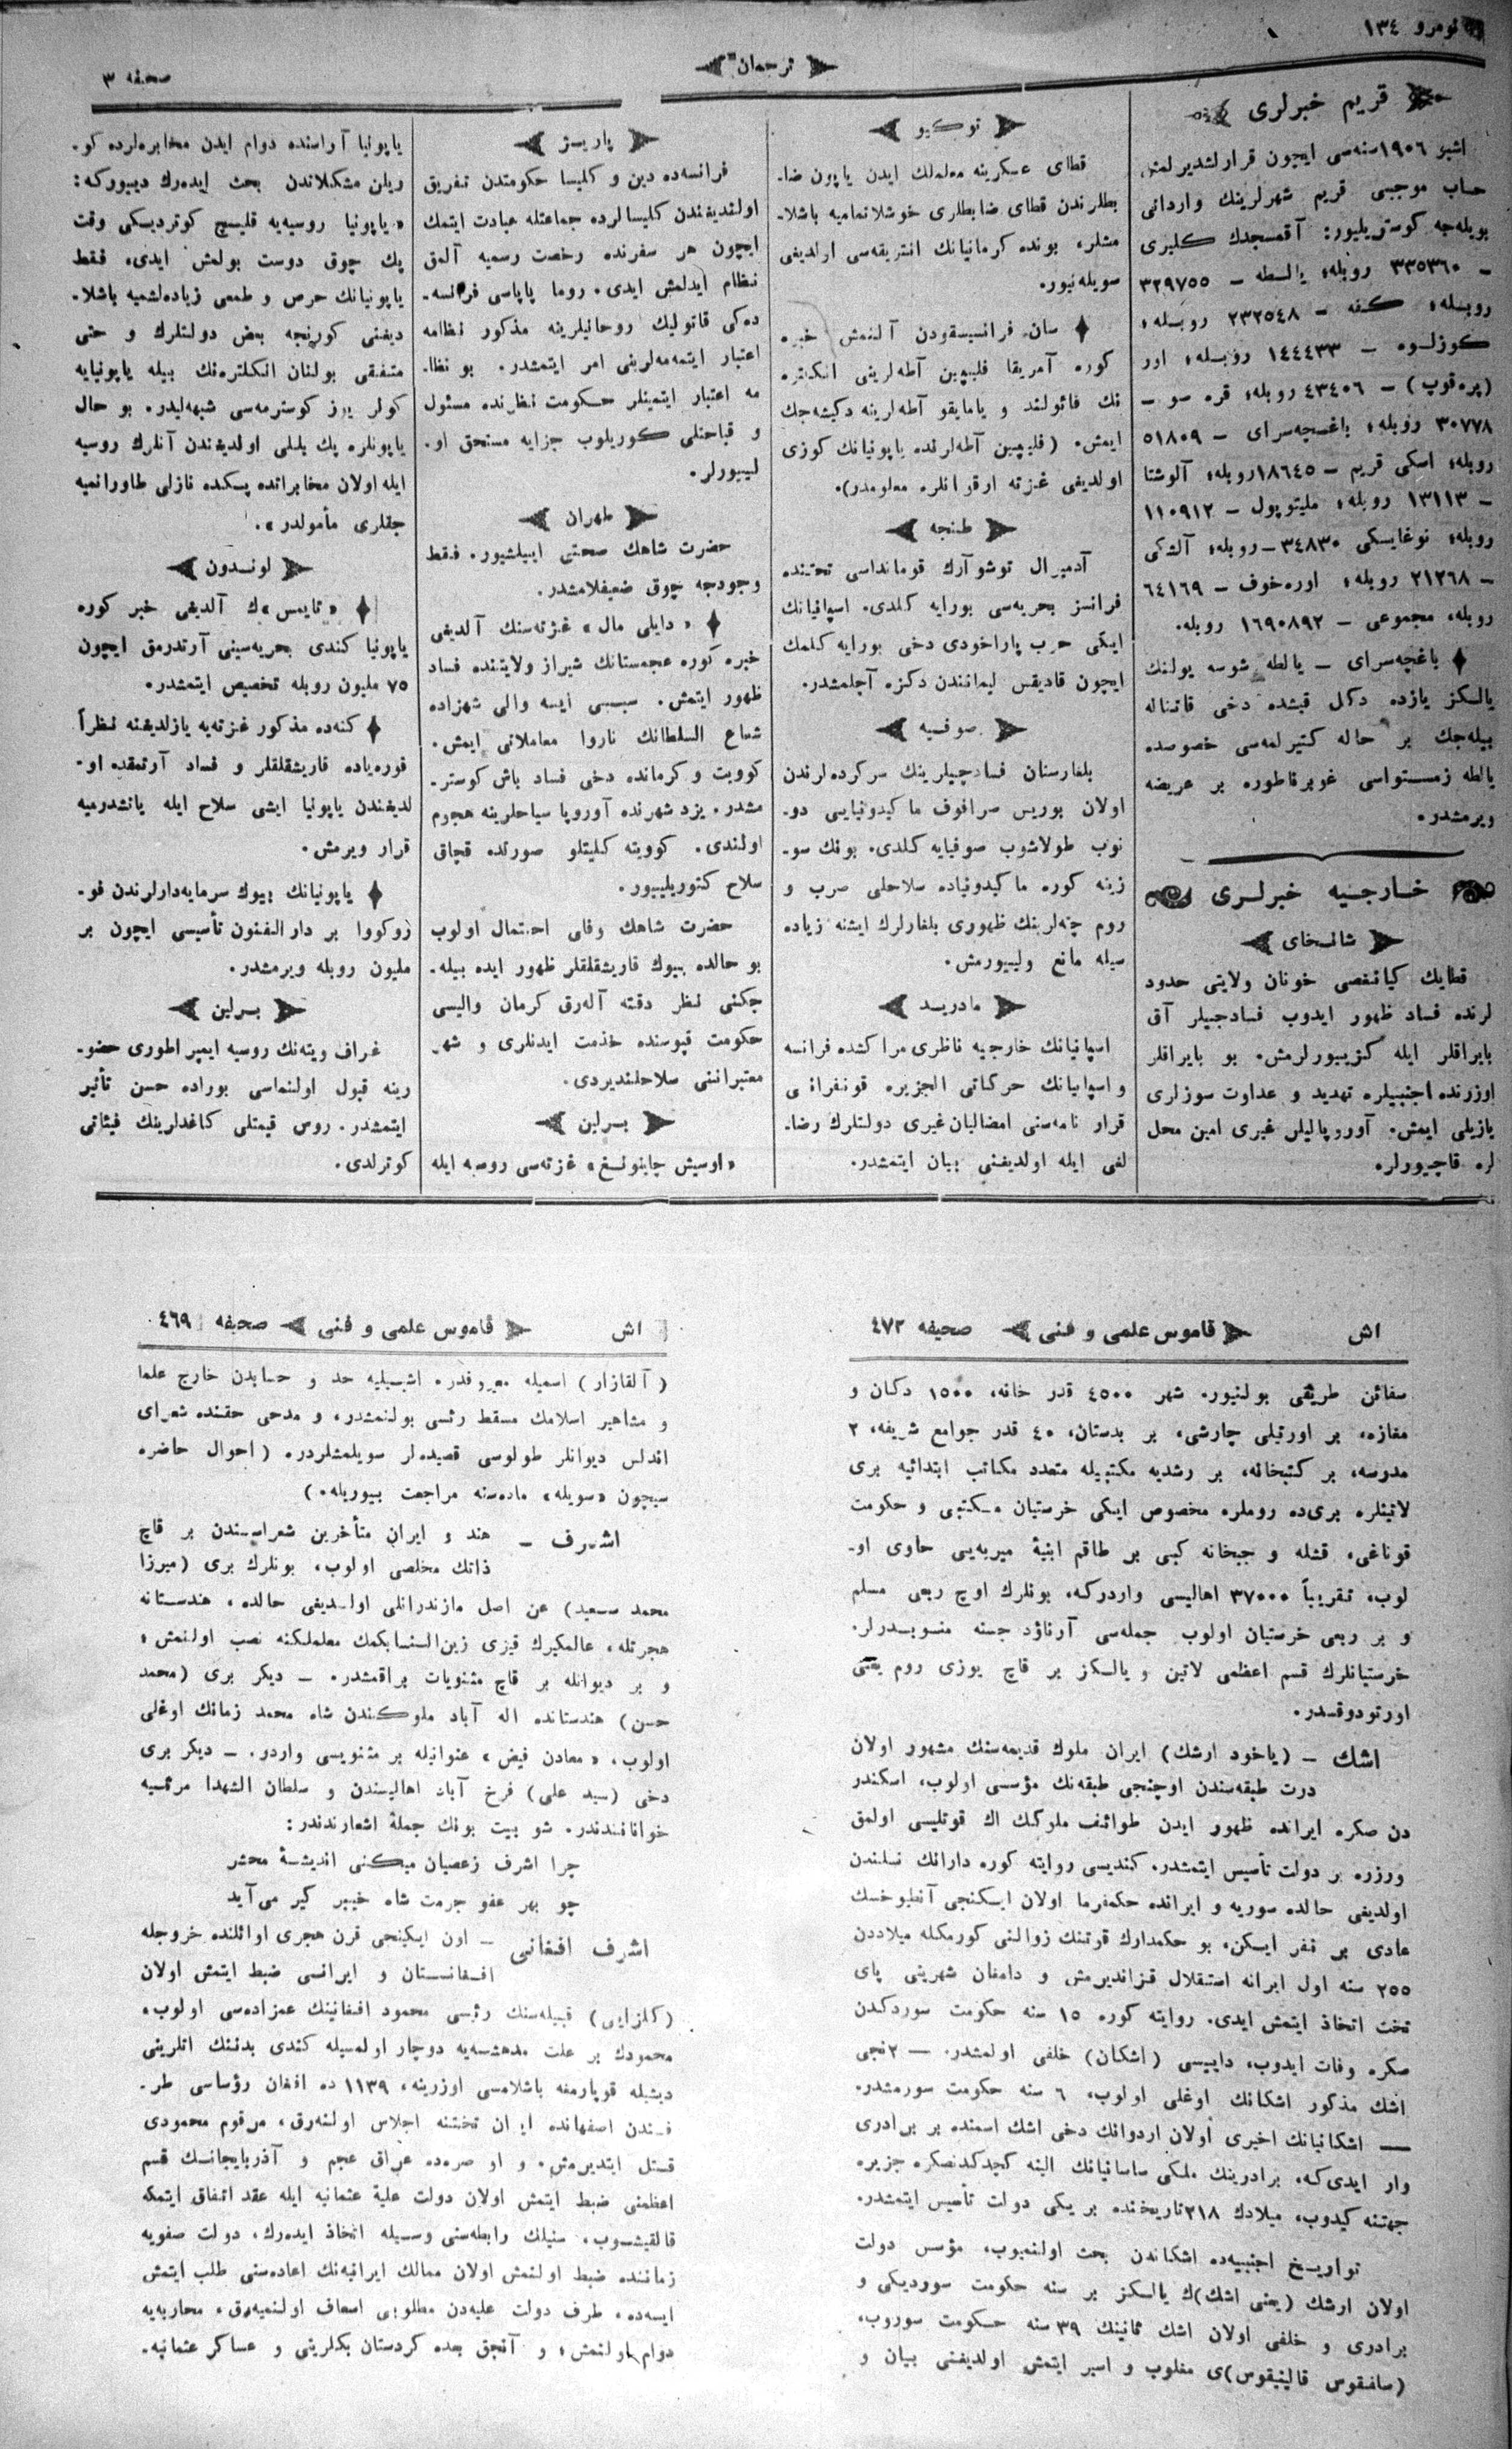 نومرو ١٣٤
ترجمان
صحفه ٣
قریم خبرلری
اشبو ١٩٠٦ سنه‌سی ایچون قرارلشدیرلمش
حساب موجبی قریم شهرلرینك وارداتی
بویله‌جه کوستریلیور: آقمسجدك کلیری
— ٣٣٥٣٦٠ روبله؛ یالطه — ٣٢٩٧٥٥
روبله؛ کفه — ٢٣٢٥٤٨ روبله؛
کوزلوه — ١٤٤٤٣٣ روبله؛ اور
(پره‌قوپ) — ٤٣٤٠٦ روبله؛ قره صو —
٣٠٧٧٨ روبله؛ باغچه‌سرای — ٥١٨٠٩
روبله؛ اسکی قریم — ١٨٦٤٥ روبله؛ آلوشتا
— ١٣١١٣ روبله؛ ملیتوپول — ١١٠٩١٢
روبله؛ نوغایسکی ٣٤٨٣٠ — روبله؛ آلشکی
— ٢١٢٦٨ روبله؛ اوره‌خوف — ٦٤١٦٩
روبله، مجموعی — ١٦٩٠٨٩٢ روبله.
باغچه‌سرای — یالطه شوسه یولنك
یالکز یازده دکل قیشده دخی قاتناله
بیله‌جك بر حاله کتیرلمه‌سی خصوصده
یالطه زمستواسی غوبرناطوره بر عریضه
ویرمشدر.
خارجیه خبرلری
شانخای
قطایك کیانفصی خونان ولایتی حدود
لرنده فساد ظهور ایدوب فسادجیلر آق
بایراقلر ایله کزییورلرمش. بو بایراقلر
اوزرنده اجنبیلره تهدید و عداوت سوزلری
یازیلی ایمش. آوروپالیلر غیری امین محل
لره قاچیورلر.
توکیو
قطای عسکرینه معلملك ایدن یاپون ضا-
بطلرندن قطای ضابطلری خوشلانمامیه باشلا-
مشلر، بونده کرمانیانك انتریقه‌سی اولدیغی
سویله‌نیور.
سان فرانسیسقودن آلنمش خبره
کوره آمریقا فلیپین آطه‌لرینی انکلتره
نك فالولند و یامایقو آطه‌لرینه دکیشه‌جك
ایمش. (فلیپین آطه‌لرنده یاپونیانك کوزی
اولدیغی غزته اوقوانلره معلومدر).
طنجه
آدمیرال توشوآرك قوماندا‌سی تحتنده
فرانسز بحریه‌سی بورایه کلدی. اسپانیانك
ایکی حرب پاراخودی دخی بورایه کلمك
ایچون قادیقس لیمانندن دکزه آچلمشدر.
صوفیه
بلغارستان فسادجیلرینك سرکرده‌لرندن
اولان بوریس صرافوف ماکیدونیایی دو-
نوب طولاشوب صوفیایه کلدی. بونك سو-
زینه کوره ماکیدونیاده سلاحلی صرب و
روم چته‌لرینك ظهوری بلغارلرك ایشنه زیاده
سیله مانع ولییورمش.
مادرید
اسپانیانك خارجیه ناظری مراکشده فرانسه
و اسپانیانك حرکاتی الجزیره قونفرانسی
قرار نامه‌سنی امضالیان غیری دولتلرك رضا-
لغی ایله اولدیغنی بیان ایتمشدر.
پاریز
فرانسه‌ده دین و کلیسا حکومتدن تفریق
اولندیغندن کلیسالرده جماعتله عبادت ایتمك
ایچون هر سفرنده رخصت رسمیه آلمق
نظام ایدلمش ایدی. روما پاپاسی فرانسه-
ده‌کی قاتولیك روحانیلرینه مذکور نظامه
اعتبار ایتمه‌مه‌لرینی امر ایتمشدر. بو نظا-
مه اعتبار ایتمینلر حکومت نظرنده مسئول
و قباحتلی کوریلوب جزایه مستحق او-
لییورلر.
طهران
حضرت شاهك صحتی اییلشیور. فقط
وجودجه چوق ضعیفلامشدر.
«دایلی مال» غزته‌سنك آلدیغی
خبره کوره عجمستانك شیراز ولایتنده فساد
ظهور ایتمش. سببی ایسه والی شهزاده
شعاع السلطانك ناروا معاملاتی ایمش.
کوویت و کرمانده دخی فساد باش کوستر-
مشدر. یزد شهرنده آوروپا سیاحلرینه هجوم
اولندی. کوویته کلیتلو صورتده قچاق
سلاح کتوریلییور.
حضرت شاهك وفاتی احتمال اولوب
بو حالده بیوك قاریشقلقلر ظهور ایده بیله-
جکنی نظر دقته آله‌رق کرمان والیسی
حکومت قپوسنده خدمت ایدنلری و شهر
معتبراننی سلاحلندیردی.
برلین
«اوسیش چایتونغ» غزته‌سی روسیه ایله
یاپونیا آراسنده دوام ایدن مخابره‌لرده کو-
ریلن مشکلاتدن بحث ایده‌رك دییورکه:
«یاپونیا روسیه‌یه قلیچ کوتردیکی وقت
پك چوق دوست بولمش ایدی، فقط
یاپونیانك حرص و طمعی زیاده‌لشمیه باشلا-
دیغنی کورنجه بعض دولتلرك و حتی
متفقی بولنان انکلتره‌نك بیله یاپونیایه
کولر یوز کوسترمه‌سی شبهه‌لیدر. بو حال
یاپونلره پك بللی اولدیغندن آنلرك روسیه
ایله اولان مخابراتده پسکده نازلی طاورانمیه
جقلری مأمولدر».
لوندون
«تایمس»ك آلدیغی خبر کوره
یاپونیا کندی بحریه‌سینی آرتدرمق ایچون
٧٥ ملیون روبله تخصیص ایتمشدر.
کنه‌ده مذکور غزته‌یه یازلدیغنه نظراً
قوره‌یاده قاریشقلقلر و فساد آرتمقده او-
لدیغندن یاپونیا ایشی سلاح ایله یاتشدرمیه
قرار ویرمش.
یاپونیانك بیوك سرمایه‌دارلرندن فو-
زوکووا بر دارالفنون تأسیسی ایچون بر
ملیون روبله ویرمشدر.
برلین
غراف ویته‌نك روسیه ایمپراطوری حضو-
رینه قبول اولنماسی بوراده حسن تأثیر
ایتمشدر. روس قیمتلی کاغدلرینك فیئاتی
کوترلدی.
اش قاموس علمی و فنی صحیفه ٤٧٢
سفائن طریقی بولنیور. شهر ٤٥٠٠ قدر خانه، ١٥٠٠ دکان و
مغازه، بر اورتیلی چارشی، بر بدستان، ٤٠ قدر جوامع شریفه، ٢
مدرسه، بر کتبخانه، بر رشدیه مکتبیله متعدد مکاتب ابتدائیه بری
لاتینلره بری‌ده روملره مخصوص ایکی خرستیان مکتبی و حکومت
قوناغی، قشله و جبخانه کبی بر طاقم ابنیۀ میریه‌یی حاوی او-
لوب، تقریباً ٣٧٠٠٠ اهالیسی واردرکه، بونلرك اوچ ربعی مسلم
و بر ربعی خرستیان اولوب جمله‌سی آرناؤد جنسنه منسوبدرلر.
خرستیانلرك قسم اعظمی لاتین و یالکز بر قاچ یوزی روم یعنی
اورتودوقسدر.
اشك — (یاخود ارشك) ایران ملوك قدیمه‌سنك مشهور اولان
درت طبقه‌سندن اوچنجی طبقه‌نك مؤسسی اولوب، اسکندر
دن صکره ایرانده ظهور ایدن طوائف ملوکك اك قوتلیسی اولمق
اوزره بر دولت تأسیس ایتمشدر. کندیسی روایته کوره دارانك نسلندن
اولدیغی حالده سوریه و ایرانده حکمفرما اولان ایکنجی آنطیوخسك
عادی بر نفر ایسکن، بو حکمدارك قوتنك زوالنی کورمکله میلاددن
٢٥٥ سنه اول ایرانه استقلال قزاندیرمش و دامغان شهرینی پای
تخت اتخاذ ایتمش ایدی. روایته کوره ١٥ سنه حکومت سوردکدن
صکره وفات ایدوب، داییسی (اشکان) خلفی اولمشدر. — ٢نجی
اشك مذکور اشکانك اوغلی اولوب، ٦ سنه حکومت سورمشدر.
— اشکانیانك اخیری اولان اردوانك دخی اشك اسمنده بر برادری
وار ایدی‌که، برادرینك ملکی ساسانیانك الینه کچدکدنصکره جزیره
جهتنه کیدوب، میلادك ٢١٨ تاریخنده بر یکی دولت تأسیس ایتمشدر.
تواریخ اجنبیه‌ده اشکاندن بحث اولنمیوب، مؤسس دولت
اولان ارشك (یعنی اشك)ك یالکز بر سنه حکومت سوردیکی و
برادری و خلفی اولان اشك ثانینك ٣٩ سنه حکومت سوروب،
(سلفقوس قالینیقوس)ی مغلوب و اسیر ایتمش اولدیغنی بیان و
اش قاموس علمی و فنی صحیفه ٤٦٩
(آلقازار) اسمیله معروفدر. اشبیلیه حد و حسابدن خارج علما
و مشاهیر اسلامك مسقط رأسی بولنمشدر، و مدحی حقنده شعرای
اندلس دیوانلر طولوسی قصیده‌لر سویلمشلردر. (احوال حاضره
سیچون «سویله» ماده‌سنه مراجعت بیوریله.)
اشرف — هند و ایران متأخرین شعراسندن بر قاچ
ذاتك مخلصی اولوب، بونلرك بری (میرزا
محمد سعید) عن اصل مازندرانلی اولدیغی حالده، هندستانه
هجرتله، عالمکیرك قیزی زین‌النسابکمك معلملکنه نصب اولنمش؛
و بر دیوانله بر قاچ مثنویات براقمشدر. — دیکر بری (محمد
حسن) هندستانده اله آباد ملوکندن شاه محمد زمانك اوغلی
اولوب، «معادن فیض» عنوانیله بر مثنویسی واردر. — دیکر بری
دخی (سید علی) فرخ آباد اهالیسندن و سلطان الشهدا مرثیه
خوانانندندر. شو بیت بونك جملۀ اشعارندندر:
چرا اشرف زعصیان میکنی اندیشۀ محشر
چو بهر عفو جرمت شاه خیبر کیر می‌آید
اشرف افغانی — اون ایکینجی قرن هجری اوائلنده خروجله
افغانستان و ایرانی ضبط ایتمش اولان
(کلزایی) قبیله‌سنك رئیسی محمود افغانینك عمزاده‌سی اولوب،
محمودك بر علت مدهشه‌یه دوچار اولمسیله کندی بدننك اتلرینی
دیشیله قوپارمغه باشلامسی اوزرینه، ١١٣٩ ده افغان رؤساسی طر-
فندن اصفهانده ایران تختنه اجلاس اولنه‌رق، مرقوم محمودی
قتل ایتدیرمش. و او صره‌ده عراق عجم و آذربایجانك قسم
اعظمنی ضبط ایتمش اولان دولت علیۀ عثمانیه ایله عقد اتفاق ایتمکه
قالقیشوب، سنیلك رابطه‌سنی وسیله اتخاذ ایده‌رك، دولت صفویه
زماننده ضبط اولنمش اولان ممالك ایرانیه‌نك اعاده‌سنی طلب ایتمش
ایسه‌ده، طرف دولت علیه‌دن مطلوبی اسعاف اولنمیه‌رق، محاربه‌یه
دوام اولنمش؛ و آنجق بعده کردستان بکلرینی و عساکر عثمانیه-